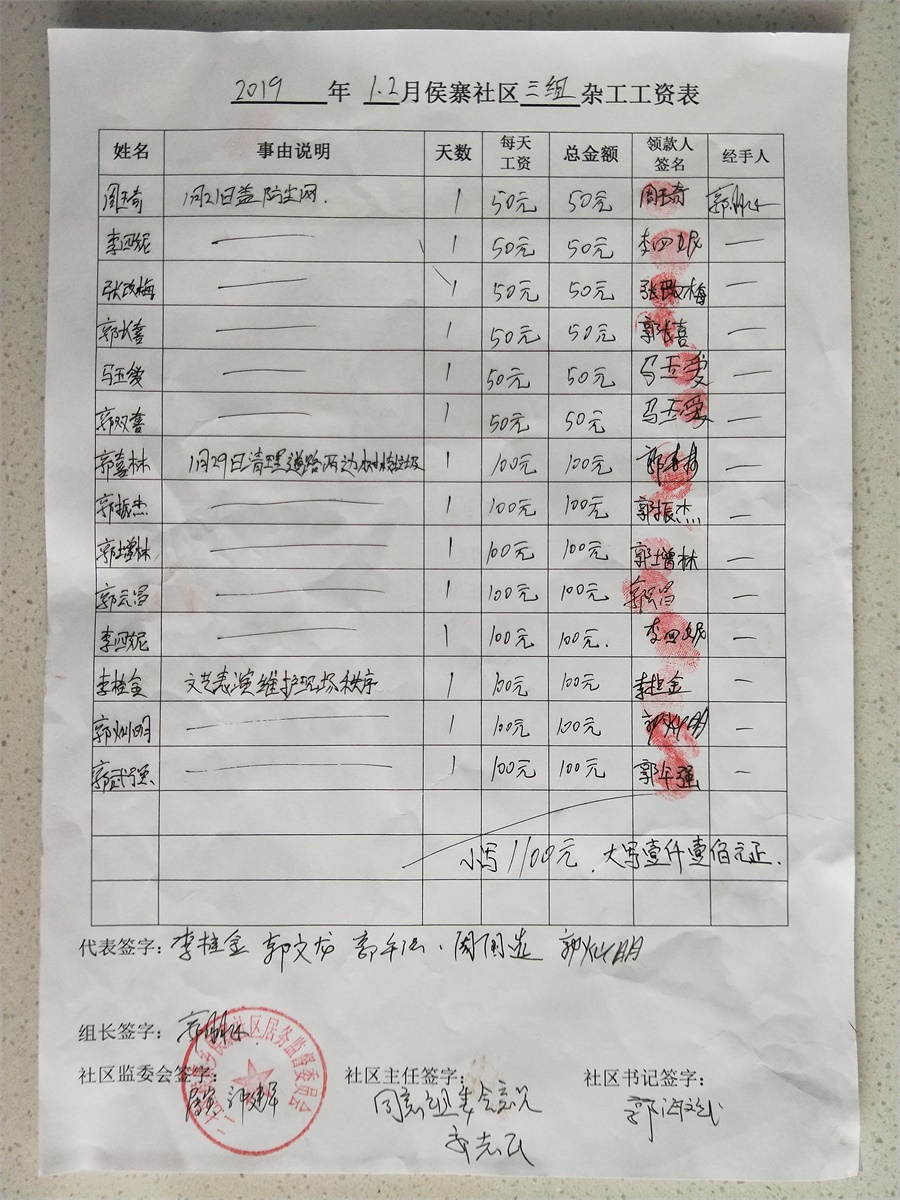 2019 年 1.2月侯寨社区三组杂工工资表
姓名 事由说明 天数 每天工资 总金额 领款人签名 经手人
周玉琦 1月21日盖防尘网. 1 50元 50元 周玉琦
李四妮 — 1 50元 50元 李四妮 —
张改梅 — 1 50元 50元 张改梅 —
郭长喜 — 1 50元 50元 郭长喜 —
马玉爱 — 1 50元 50元 马玉爱 —
郭双喜 — 1 50元 50元 马玉爱 —
郭喜林 1月29日清理道路两边树枝垃圾 1 100元 100元 郭喜林 —
郭振杰 — 1 100元 100元 郭振杰 —
郭增林 — 1 100元 100元 郭增林 —
郭云岭 — 1 100元 100元 —
李四妮 — 1 100元 100元. 李四妮 —
李桂金 文艺表演维护现场秩序 1 100元 100元 李桂金 —
郭灿明 — 1 100元 100元 郭灿明 —
— 1 100元 100元 —
小写1100元.大写壹仟壹佰元正.
代表签字: 李桂金 郭文龙 郭灿明
组长签字:
社区监委会签字: 社区主任签字: 社区书记签字:
同意组委会意见
社区居务监督委员会